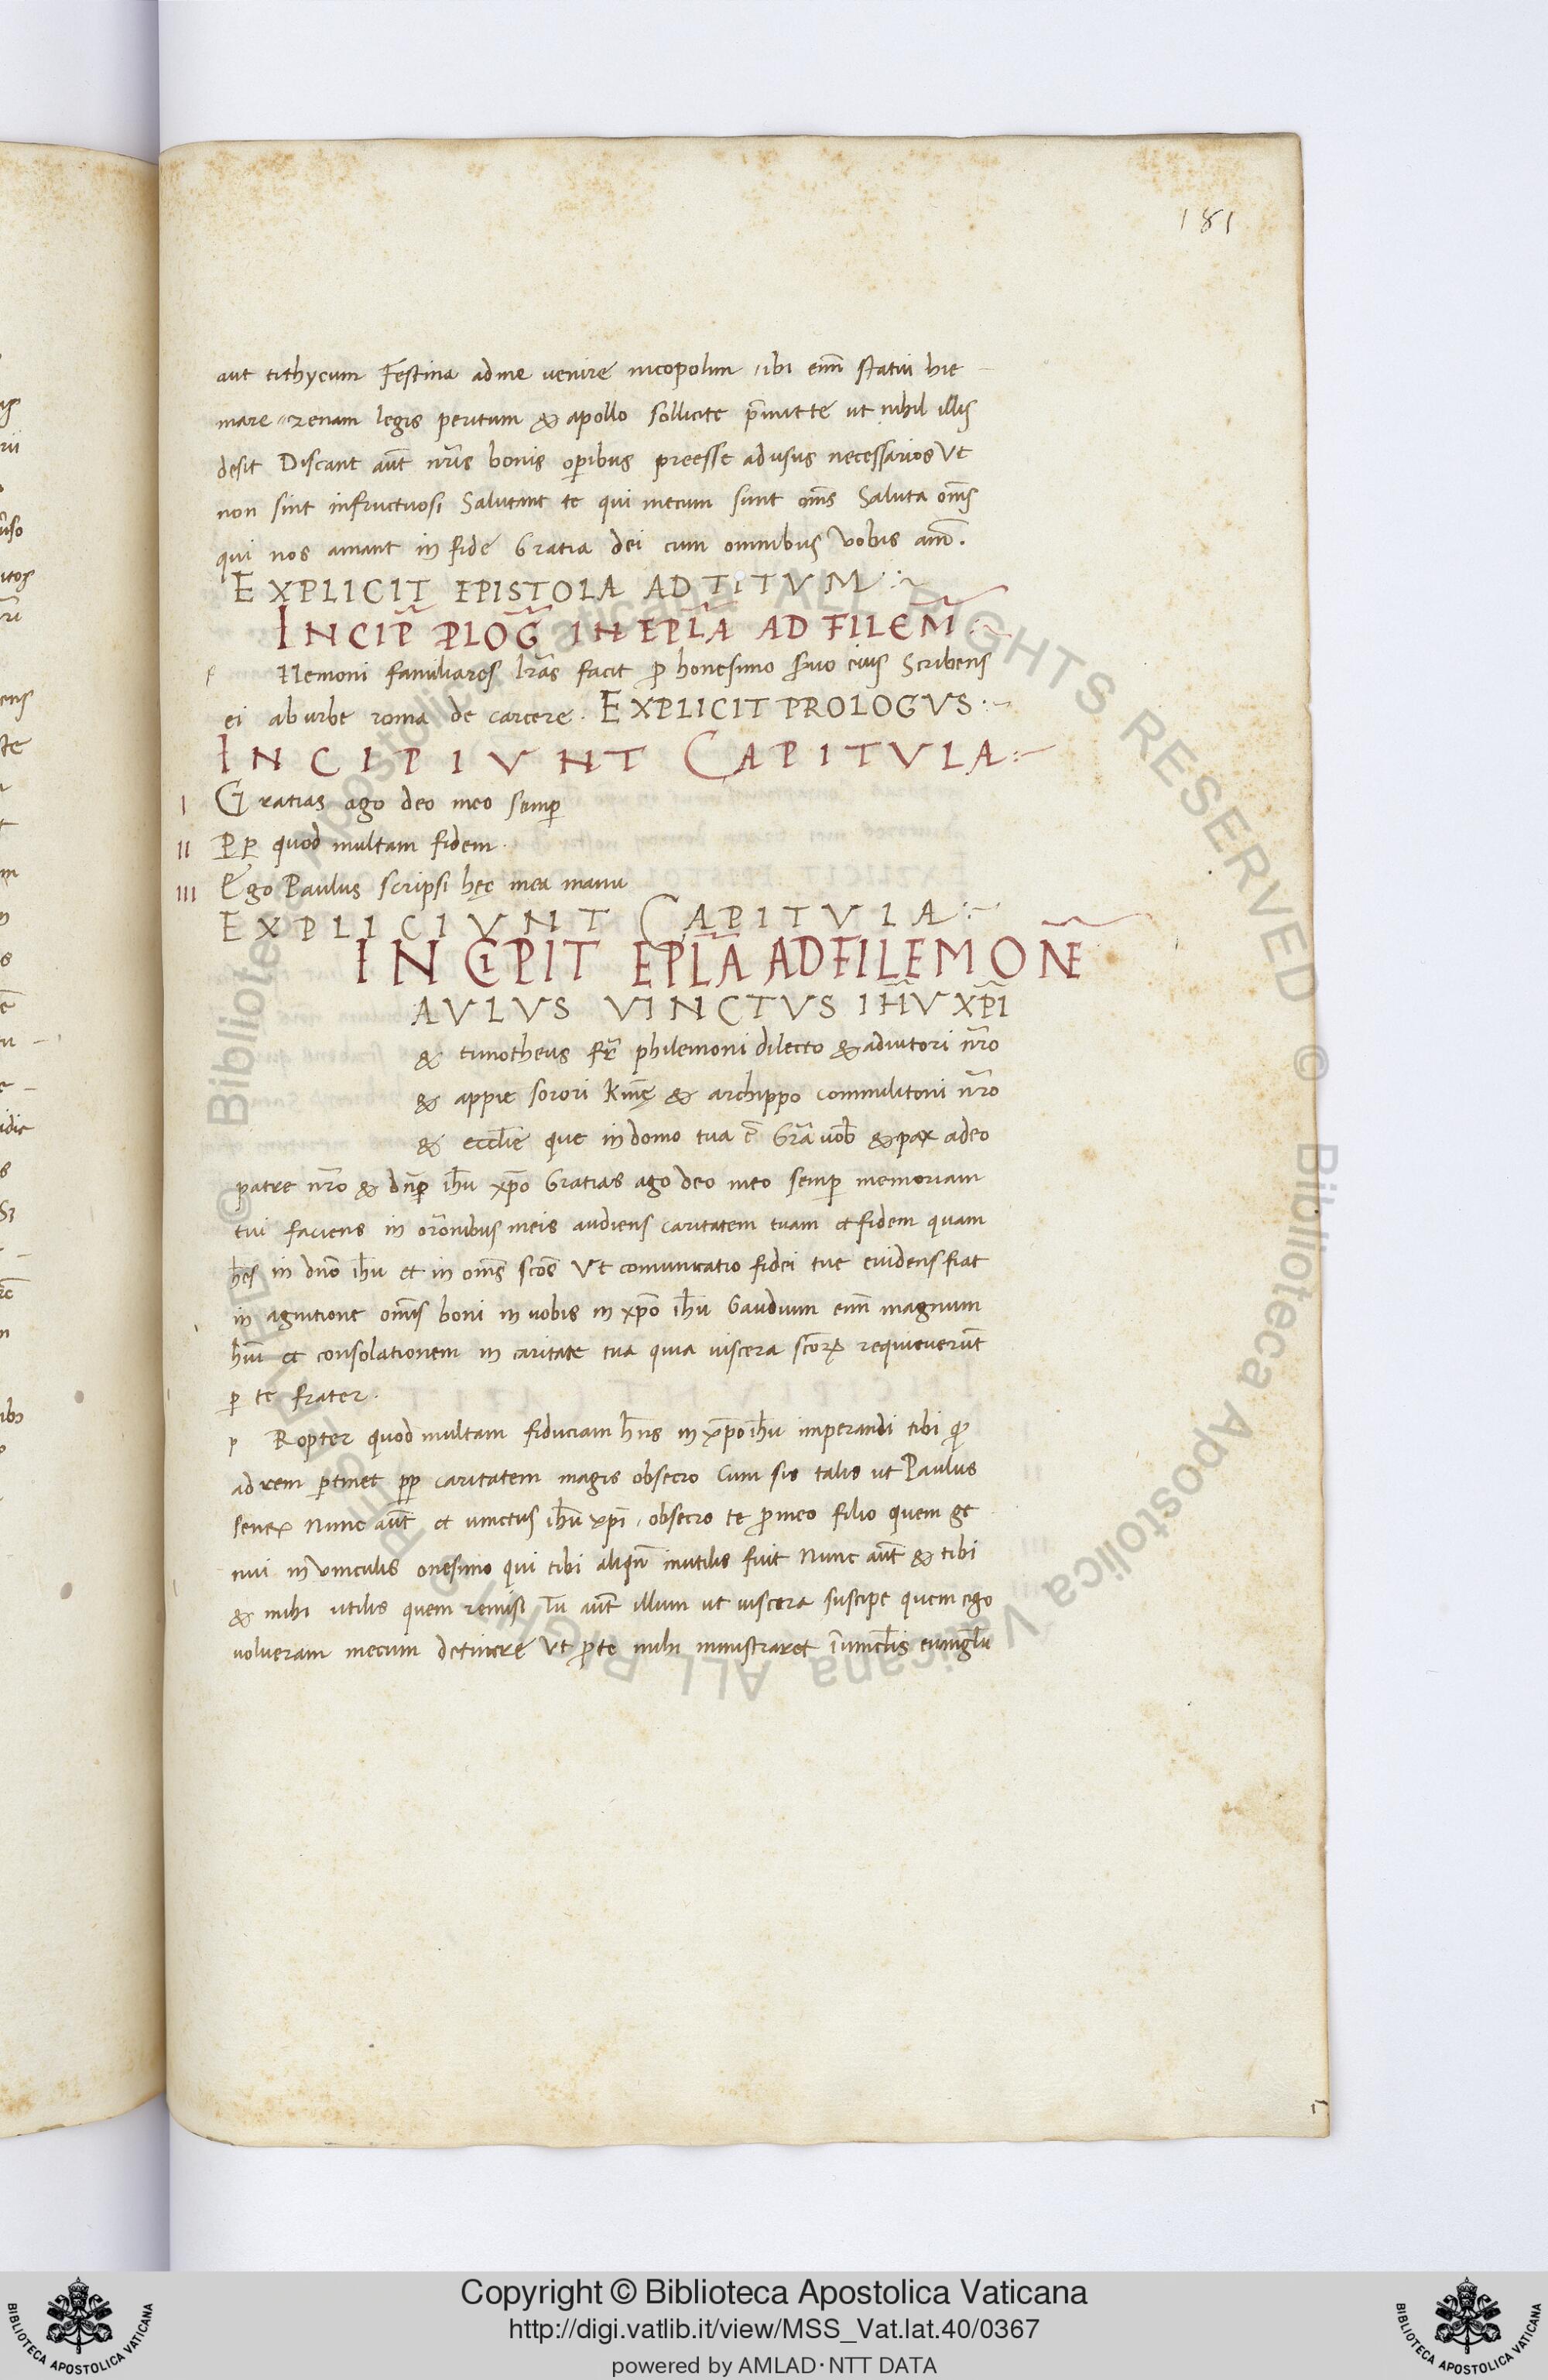 181
aut tithycum Festina adme venire nicopolim ibi eni̅ statui hie
mare zenam legis peritum & apollo sollicite p̅mitte ut nihil illis
desit Discant aut̅ nr̅is bonis oꝑibus preesse adusus necessarios Ut
non sint infructuosi Salutant te qui mecum sunt om̅s Saluta om̅s
qui nos amant in fide Gratia dei cum omnibus vobis am̅.
EXPLICIT EPISTOLA AD TITVM
INCIP̅ PLOG̅ IN EPLA̅ AD FILEM̅
Nemoni familiares lr̅as facit ꝓ honesimo s̅uo eius Scribens
ei ab urbe roma de carcere. EXPLICIT PROLOGVS
INCIPIVNT CAPITVLA
I Gratias ago deo meo semꝑ
II PP quod multam fidem.
III Ego Paulus scripsi hęc mea manu
EXPLICIVNT CAPITVLA
INCIPIT EPLA̅ AD FILEMONE̅
AVLVS VINCTVS IHV̅ XPI̅
& timotheus fr̅ philemoni dilecto & adiutori nr̅o
& appie sorori kmę & archippo commilitoni nr̅o
& eccl̅ie que in domo tua e̅ Gra̅ uob̅ & pax adeo
patre nr̅o & dn̅o ih̅u xp̅o Gratias ago deo meo semꝑ memoriam
tui faciens in or̅onibus meis audiens caritatem tuam et fidem quam
h̅es in dn̅o ih̅u et in om̅s sc̅os Ut comunicatio fidei tue euidens fiat
in agnitione om̅is boni in uobis in xp̅o ih̅u Gaudium eni̅ magnum
h̅ui et consolationem in caritate tua quia uiscera sc̅oꝝ requieueru̅t
ꝑ te frater.
p Ropter quod multam fiduciam h̅ns in xp̅o ih̅u imperandi tibi ꝙ
ad rem ꝑtinet pꝑ caritatem magis obsecro Cum sis talis ut Paulus
senex Nunc aut̅ et uinctus ih̅u xp̅i obsecro te ꝓmeo filio quem ge
nui in uinculis onesimo qui tibi aliqn̅ inutilis fuit Nunc aut̅ & tibi
& mihi utilis quem remisi Tu aut̅ illum ut uiscera suscipe quem ego
uolueram mecum detinere Ut ꝓte mihi ministraret i̅uincl̅is euangl̅ii
© Biblioteca Apostolica Vaticana ALL RIGHTS RESERVED © Biblioteca Apostolica Vaticana ALL RIGHTS RESERVED
Copyright © Biblioteca Apostolica Vaticana
http://digi.vatlib.it/view/MSS_Vat.lat.40/0367
powered by AMLAD·NTT DATA
BIBLIOTECA APOSTOLICA VATICANA
BIBLIOTECA APOSTOLICA VATICANA